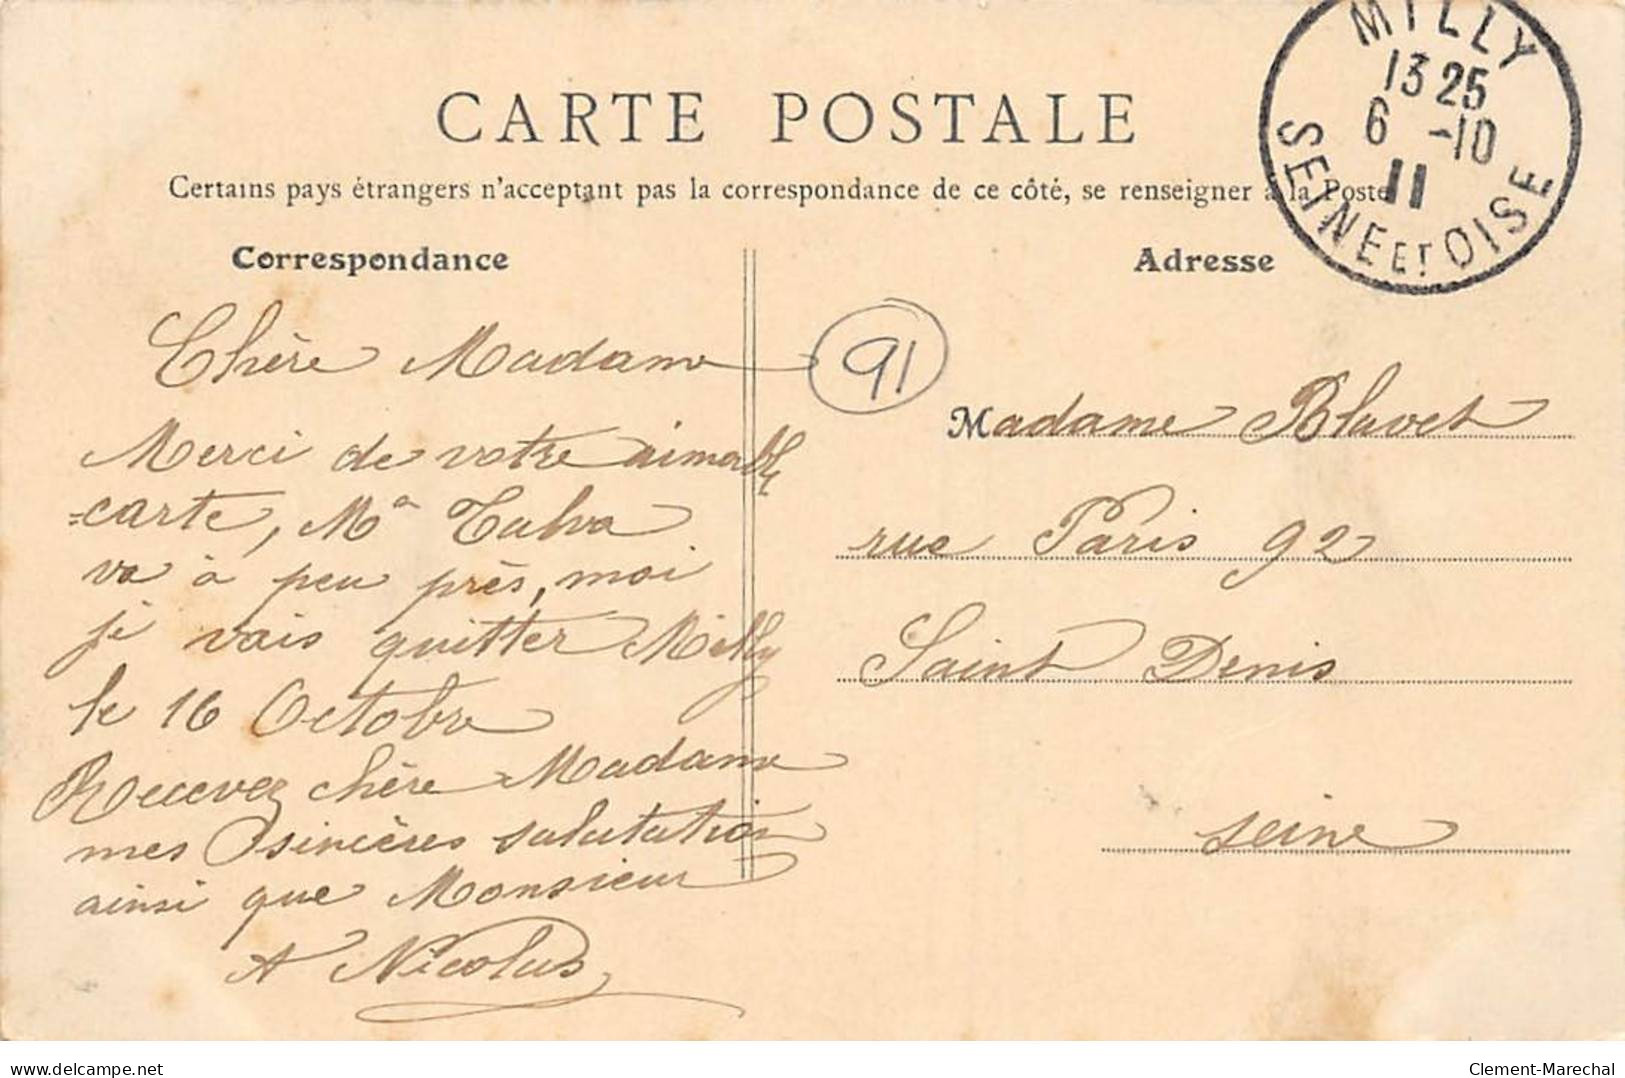 MILLY
13 25
6 -10
11
SEINE ET OISE
CARTE POSTALE
Certains pays étrangers n'acceptant pas la correspondance de ce côté, se renseigner à la Poste
Correspondance
Chère Madame
Merci de votre aimable
carte, Ma
va à peu près, moi
je vais quitter Milly
le 16 Octobre
Recevez chère Madame
mes sincères salutation
ainsi que Monsieur
A Nicolas
91
Adresse
Madame Blavet
rue Paris 92
Saint Denis
seine
delcampe.net
Clement-Marechal